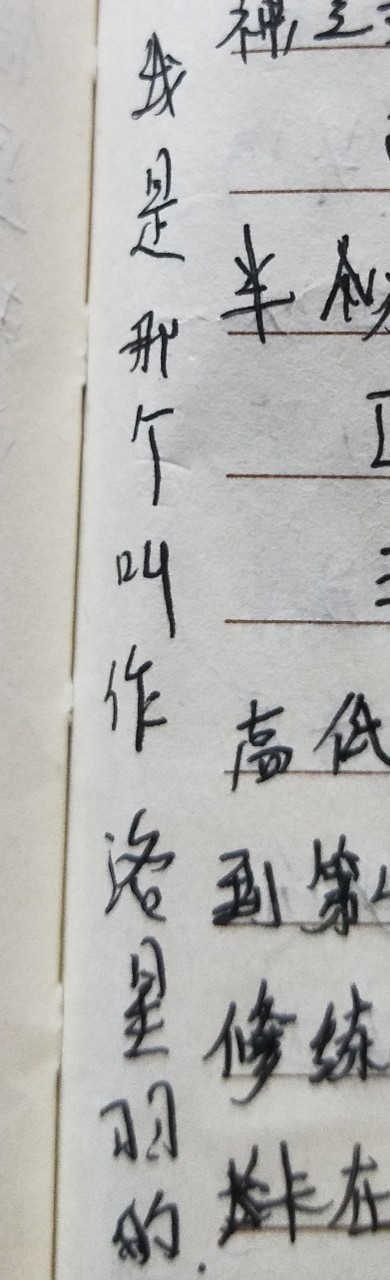 我是那个叫作洛星羽的.
神之
半
高低
到第
修练
卡在